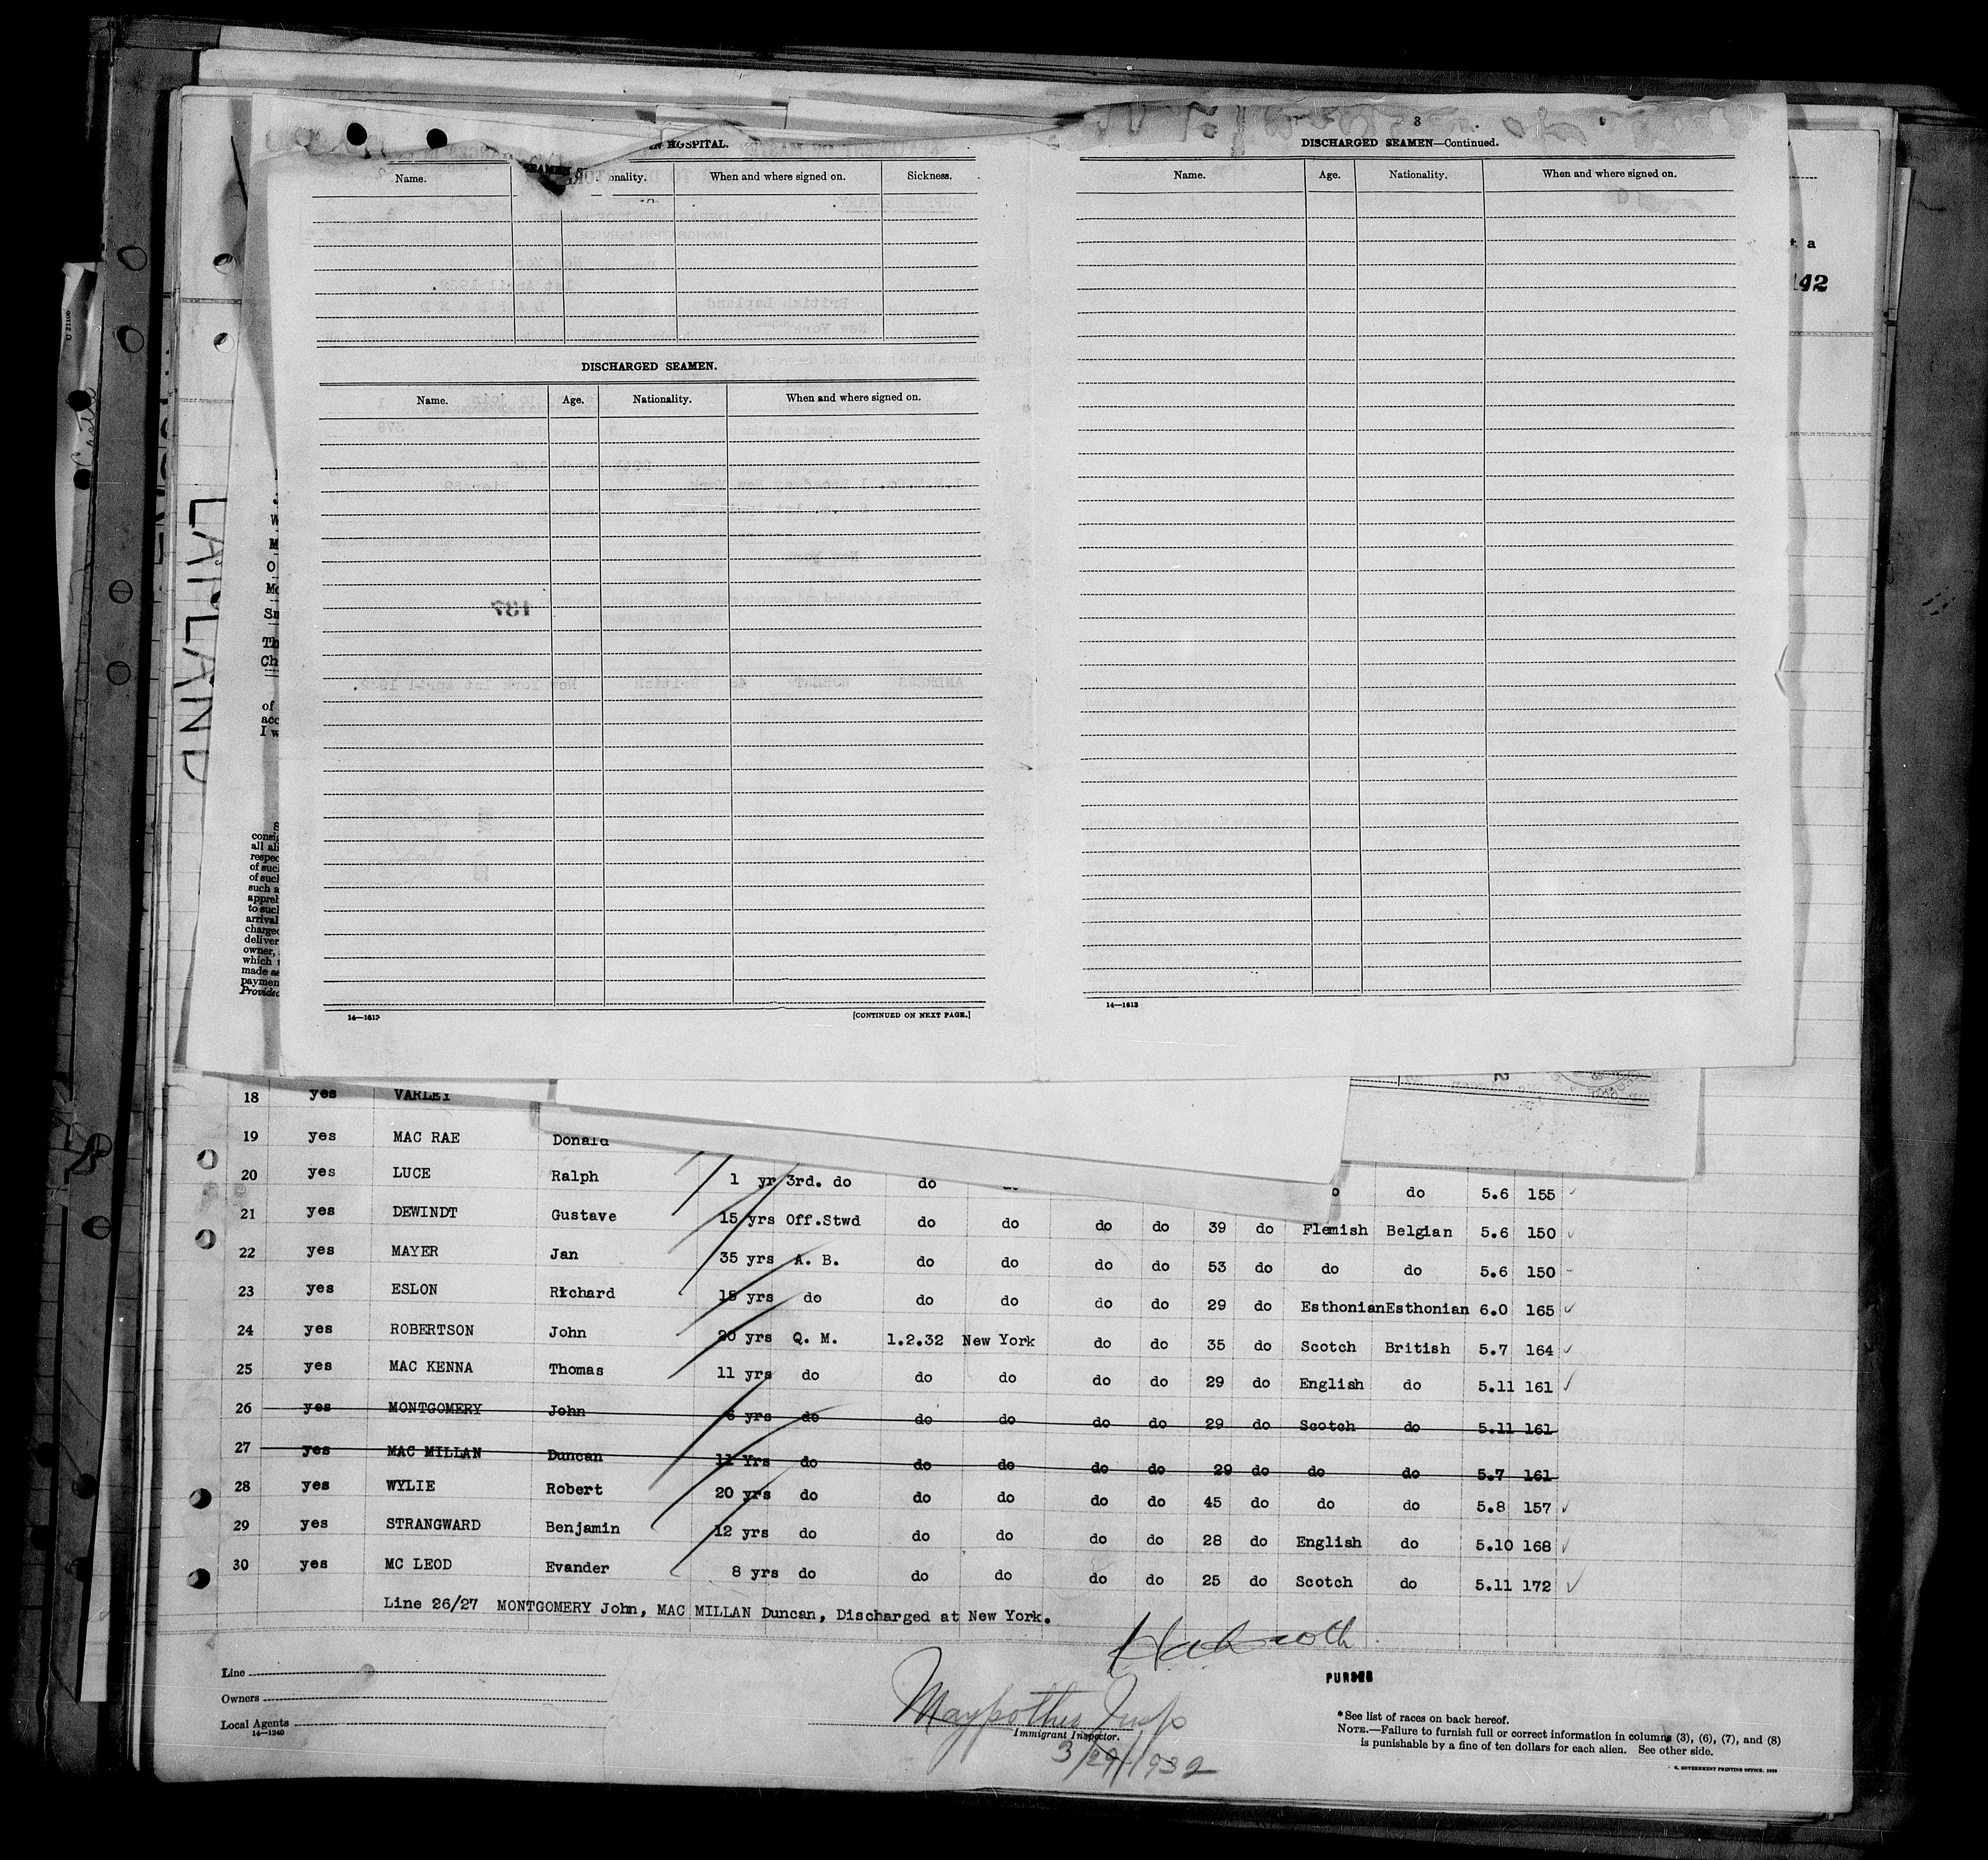 3
IN HOSPITAL.
Name. onality. When and where signed on. Sickness.
SEAMEN
DISCHARGED SEAMEN.
Name. Age. Nationality. When and where signed on.
14—1613 [CONTINUED ON NEXT PAGE.]
DISCHARGED SEAMEN—Continued.
Name. Age. Nationality. When and where signed on.
14—1613
a
142
LAPLAND
W
M
O
Mc
Sm
Th
Ch
of
acc
I w
S
consig
all ali
respec
of such
of such
such a
appreh
to such
arrival
charged
deliver
owner,
which t
made as
paymen
Provided
18 yes VARLEY
19 yes MAC RAE Donald
20 yes LUCE Ralph 1 yr 3rd. do do do 5.6 155
21 yes DEWINDT Gustave 15 yrs Off.Stwd do do do do 39 do Flemish Belgian 5.6 150
22 yes MAYER Jan 35 yrs A. B. do do do do 53 do do do 5.6 150
23 yes ESLON Richard 15 yrs do do do do do 29 do Esthonian Esthonian 6.0 165
24 yes ROBERTSON John 20 yrs Q. M. 1.2.32 New York do do 35 do Scotch British 5.7 164
25 yes MAC KENNA Thomas 11 yrs do do do do do 29 do English do 5.11 161
26 yes MONTGOMERY John 6 yrs do do do do do 29 do Scotch do 5.11 161
27 yes MAC MILLAN Duncan 11 Yrs do do do do do 29 do do do 5.7 161
28 yes WYLIE Robert 20 yrs do do do do do 45 do do do 5.8 157
29 yes STRANGWARD Benjamin 12 yrs do do do do do 28 do English do 5.10 168
30 yes MC LEOD Evander 8 yrs do do do do do 25 do Scotch do 5.11 172
Line 26/27 MONTGOMERY John, MAC MILLAN Duncan, Discharged at New York.
PURSER
Line
Owners
Local Agents
14—1240
Immigrant Inspector.
3/29/1932
*See list of races on back hereof.
NOTE.—Failure to furnish full or correct information in columns (3), (6), (7), and (8)
is punishable by a fine of ten dollars for each alien. See other side.
GOVERNMENT PRINTING OFFICE